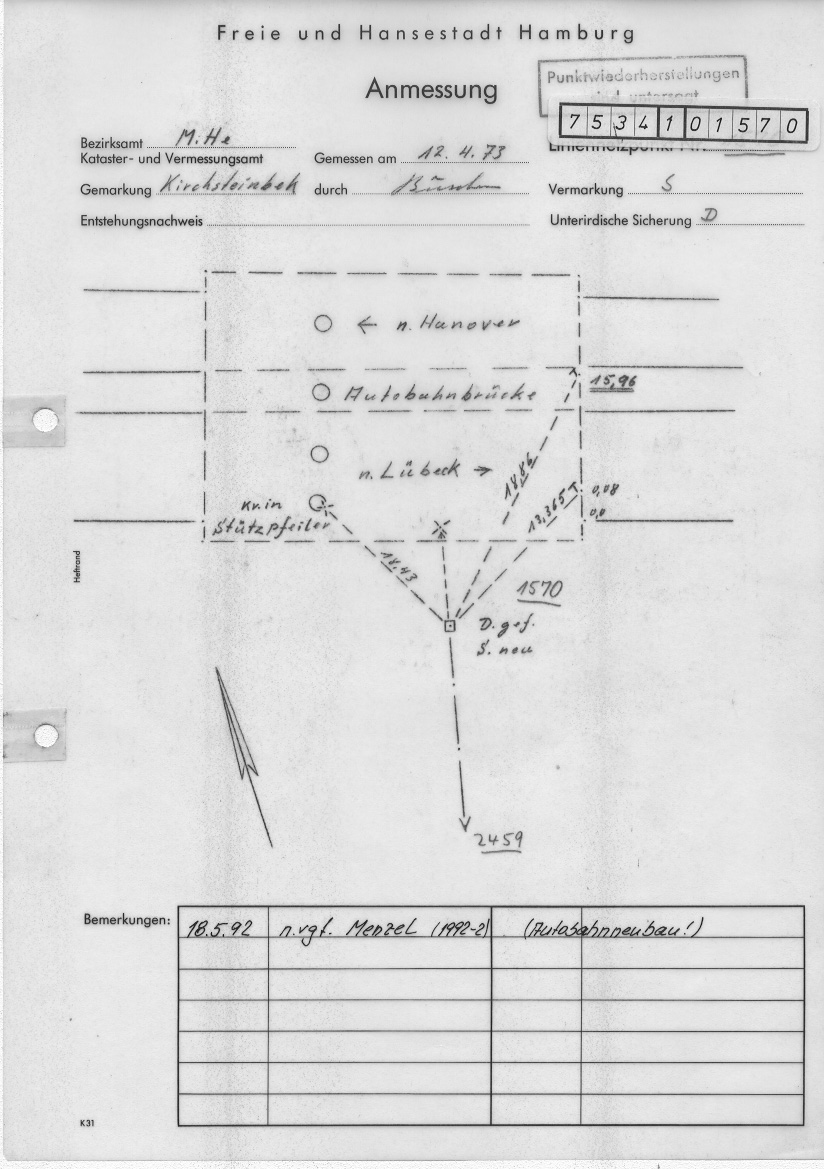 Freie und Hansestadt Hamburg
Anmessung
Punktwiederherstellungen
sind untersagt
7 5 3 4 1 0 1 5 7 0
Bezirksamt M.He
Kataster- und Vermessungsamt
Gemessen am 12.4.73
Gemarkung Kirchsteinbek
durch
Vermarkung S
Entstehungsnachweis
Unterirdische Sicherung D
← n. Hanover
15,96
Autobahnbrücke
n. Lübeck →
18,86
13,365
0,08
0,0
Kr. in
Stützpfeiler
18,43
1570
D. gef.
S. neu
2459
Heftrand
Bemerkungen:
18.5.92 n.vgf. Menzel (1992-2) (Autobahnneubau!)
K 31